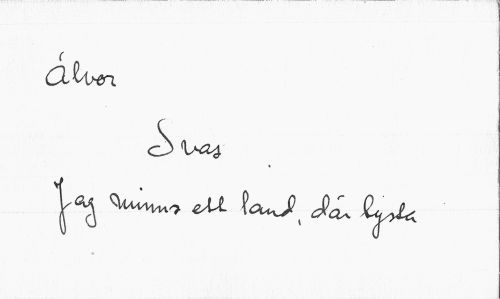 Álvor
Svas
Jag minns ett land, där lysta